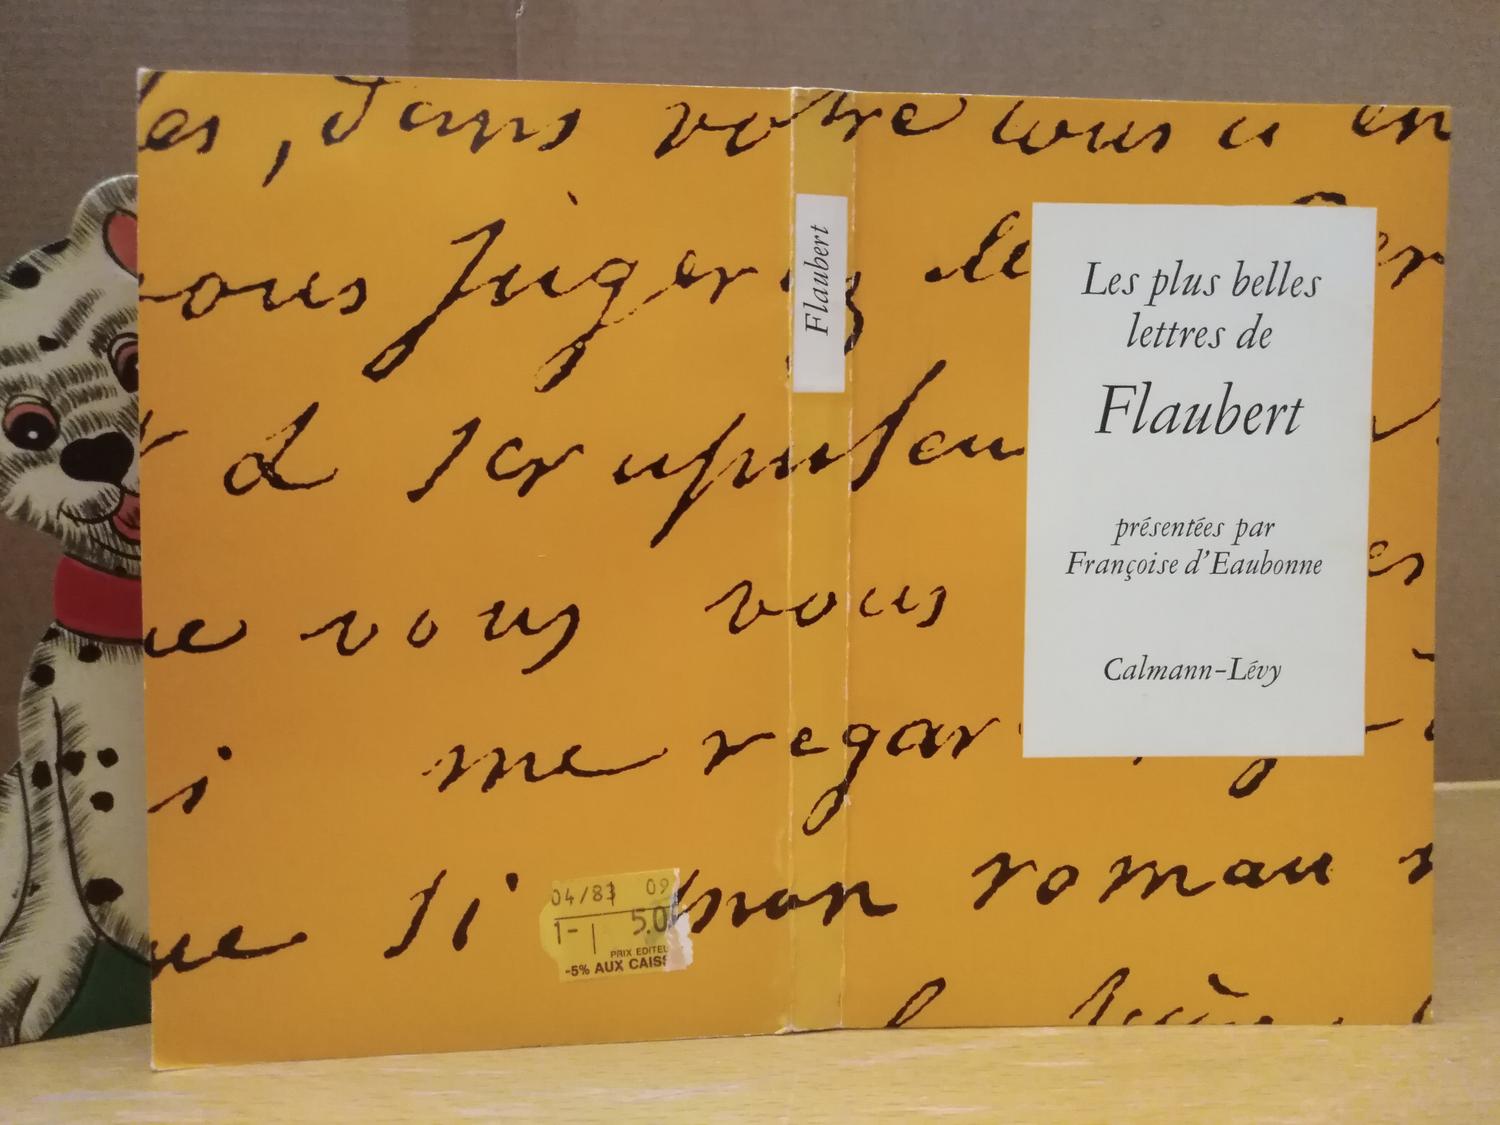 es, dans votre
vous jugerez le
Flaubert
Les plus belles
lettres de
Flaubert
présentées par
Françoise d'Eaubonne
Calmann-Lévy
d scrupuleu
ue vous vous
i me regar
ue si mon roman
04/83 09
1- 5.0
PRIX EDITEU
-5% AUX CAISS